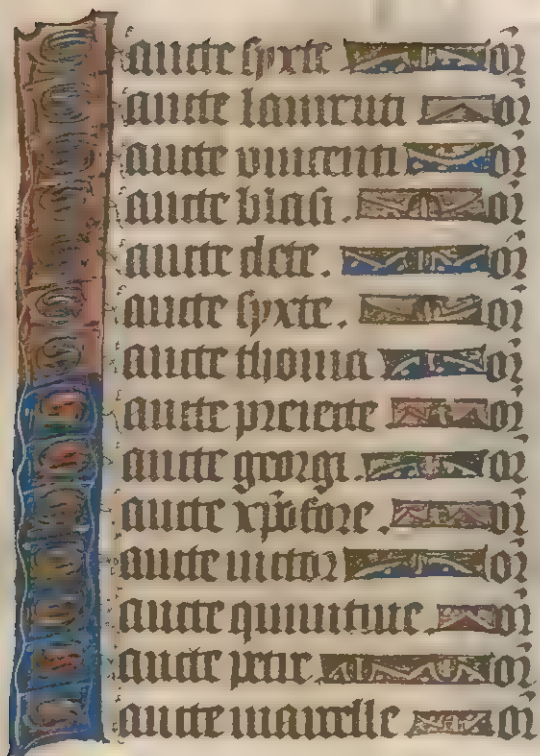 Sancte syxte or
Sancte laurenti or
Sancte vincenti or
Sancte blasi. or
Sancte dete. or
Sancte syxte. or
Sancte thoma or
Sancte preiecte or
Sancte georgi. or
Sancte xpofore. or
Sancte uictor or
Sancte quintine. or
Sancte petre. or
Sancte marcelle or